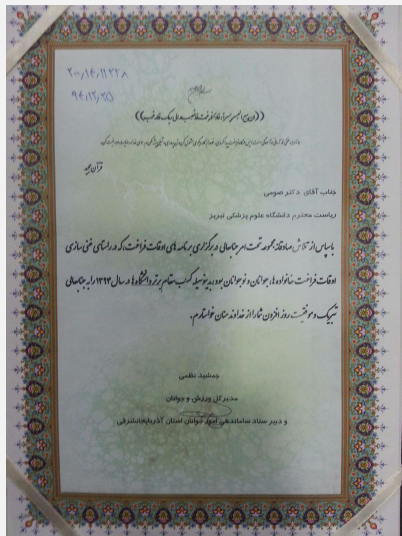 ۲۰۰/۱۴/۱۱۲۲۸
۹۴/۱۲/۲۵
((ان مع العسر یسرا، فاذا فرغت فانصب و الی ربک فارغب))
قرآن مجید
جناب آقای دکتر صومی
ریاست محترم دانشگاه علوم پزشکی تبریز
با سپاس از تلاش صادقانه مجموعه تحت امر جنابعالی در برگزاری برنامه های اوقات فراغت، که در راستای غنی سازی
اوقات فراغت خانواده ها، جوانان و نوجوانان بود، بدینوسیله کسب مقام برتر دانشگاه ها در سال ۱۳۹۴ را به جنابعالی
تبریک و موفقیت روز افزون شما را از خداوند منان خواستارم.
جمشید نظمی
مدیر کل ورزش و جوانان
و دبیر ستاد ساماندهی امور جوانان استان آذربایجانشرقی